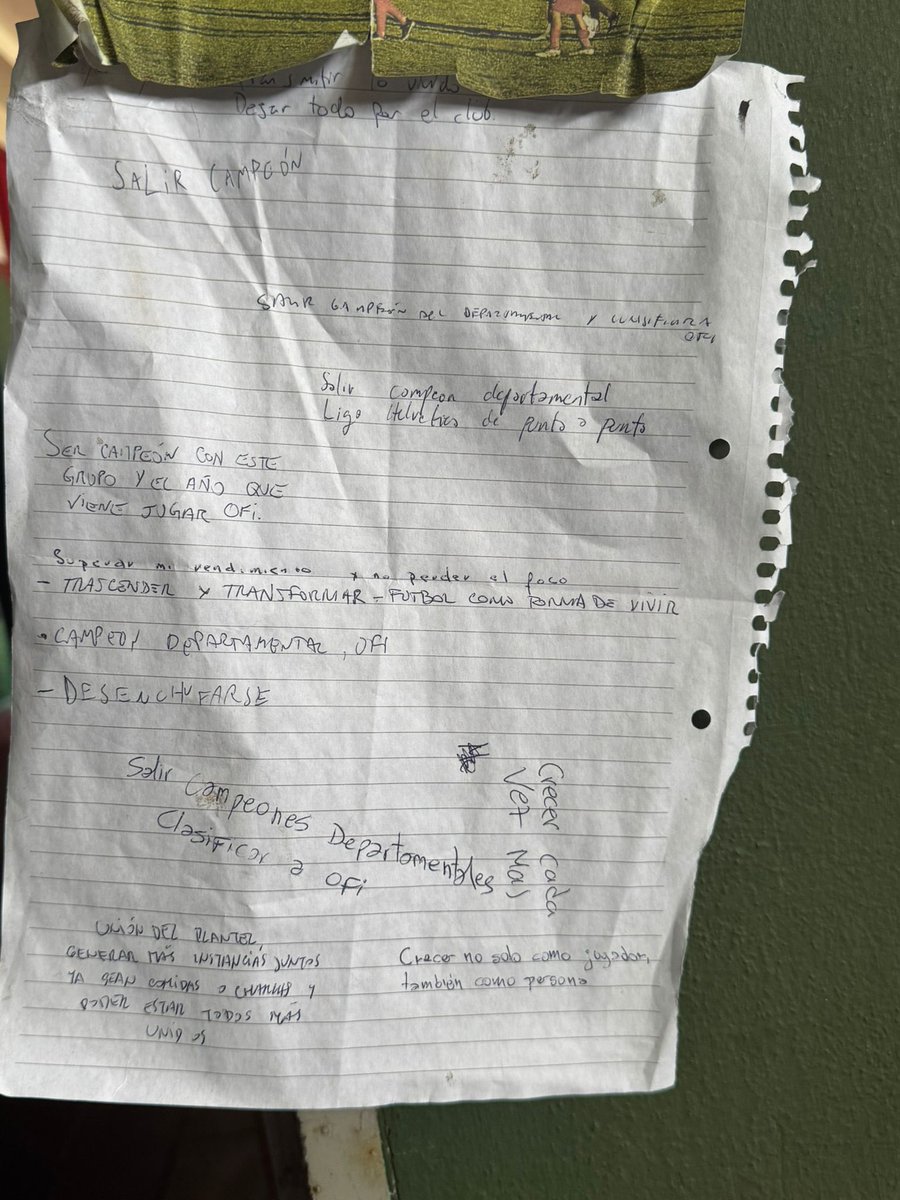 Transmitir lo vivido
Dejar todo por el club.
SALIR CAMPEÓN
SALIR CAMPEÓN DEL DEPARTAMENTAL Y CLASIFICAR A
OFI
Salir campeon departamental
Liga Helvetica de punta a punta
SER CAMPEÓN CON ESTE
GRUPO Y EL AÑO QUE
VIENE JUGAR OFI.
Superar mi rendimiento y no perder el foco
- TRASCENDER Y TRANSFORMAR = FUTBOL COMO FORMA DE VIVIR
• CAMPEON DEPARTAMENTAL, OFI
- DESENCHUFARSE
Salir Campeones Departamentales
Clasificar a OFI
Crecer cada
Vez Mas
UNIÓN DEL PLANTEL,
GENERAR MÁS INSTANCIAS JUNTOS
YA SEAN COMIDAS O CHARLAS Y
PODER ESTAR TODOS MÁS
UNIDOS
Crecer no solo como jugador,
también como persona